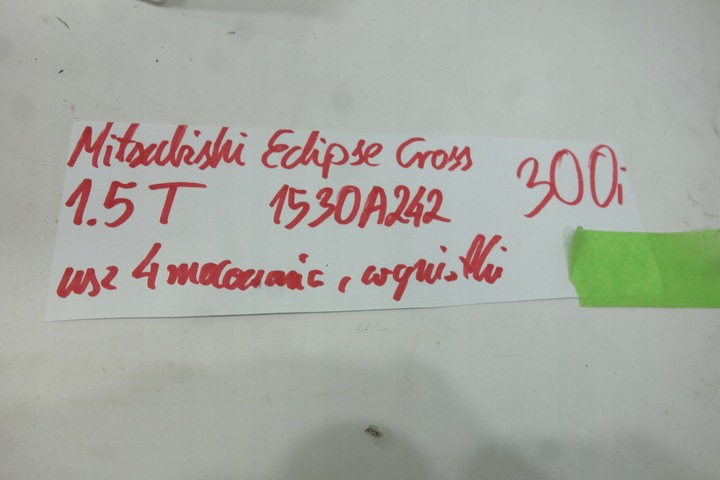 Mitsubishi Eclipse Cross 300i
1.5 T 1530A242
usz 4 mocowanie, wgniotki